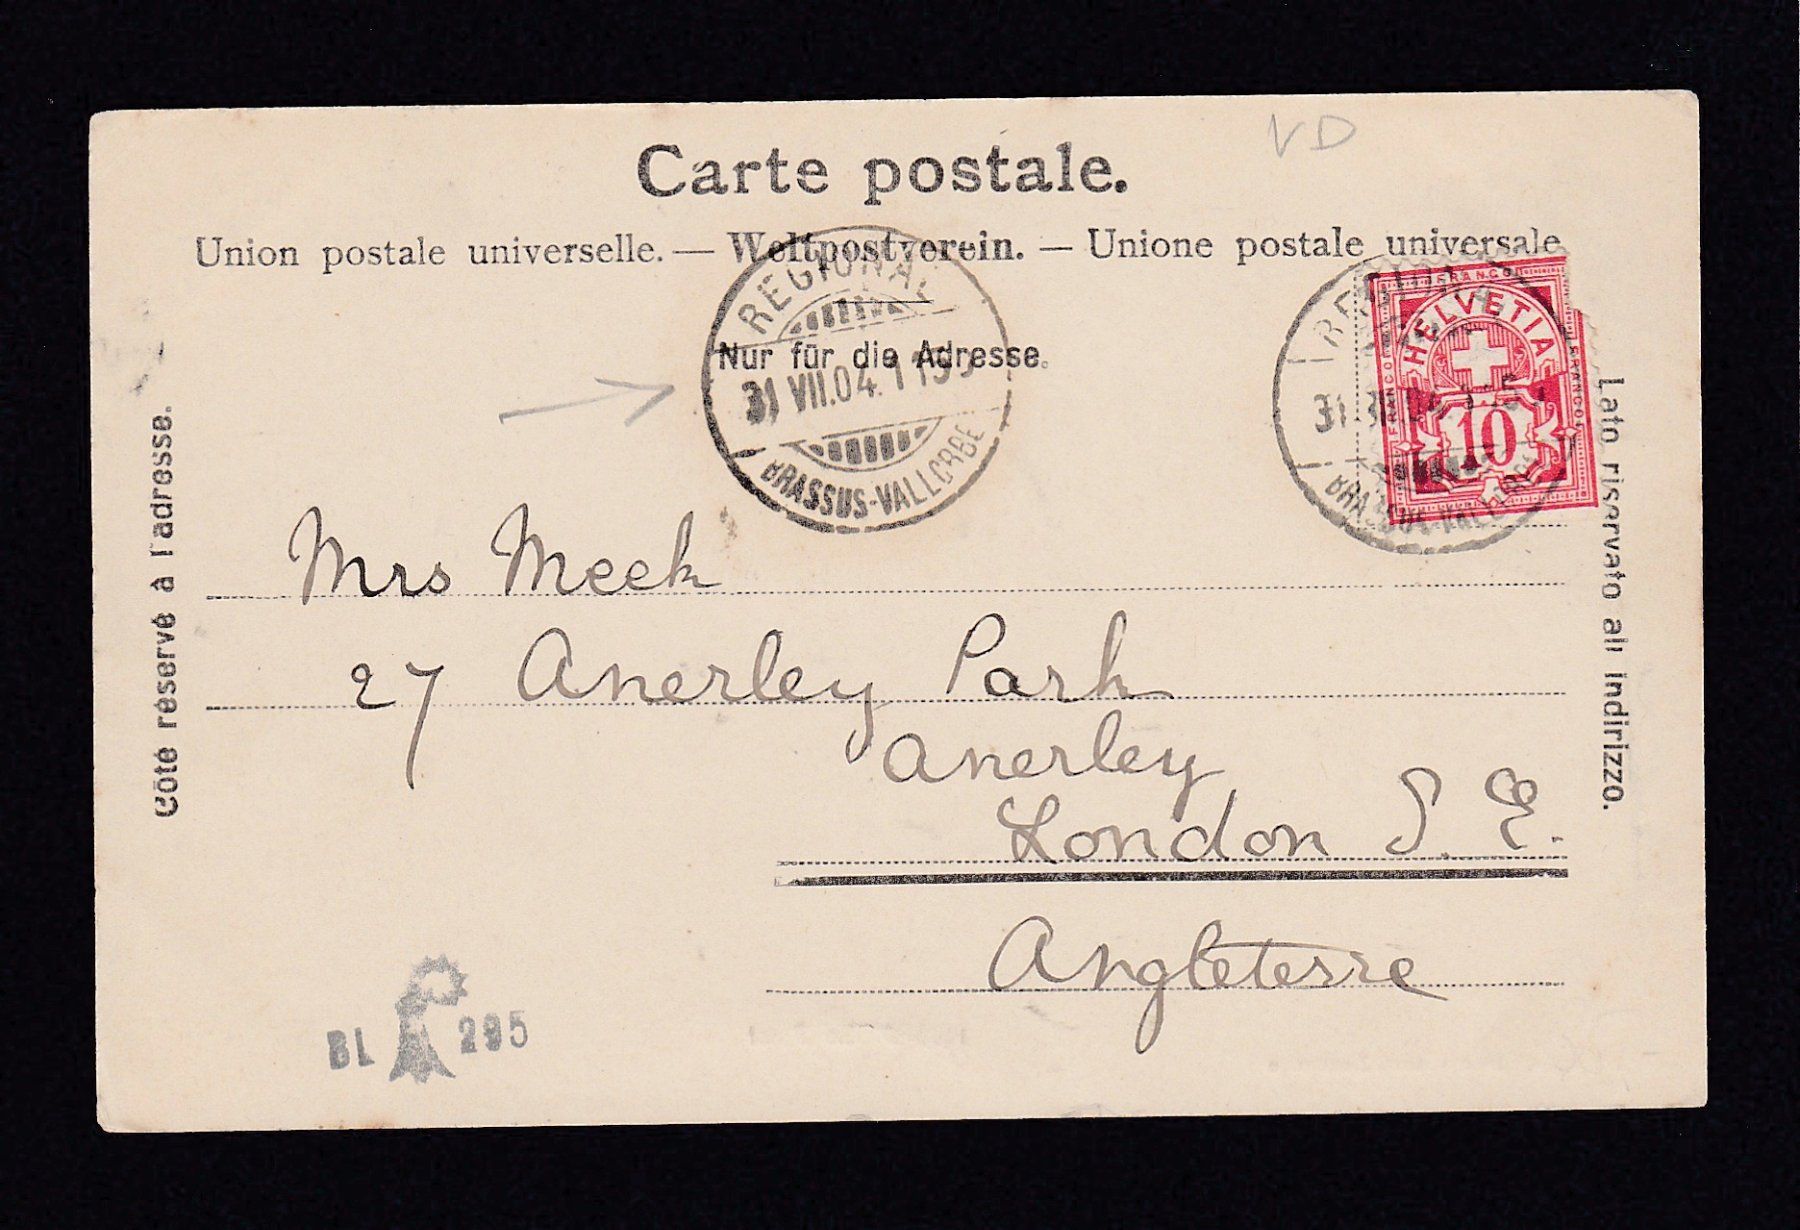 VD
Carte postale.
Union postale universelle. — Weltpostverein. — Unione postale universale
REGIONAL
Nur für die Adresse.
31 VII.04. 11
BRASSUS-VALLORBE
FRANCO
HELVETIA
FRANCO
FRANCO
10
31
Côté réservé à l'adresse.
Lato riservato all indirizzo.
Mrs Meek
27 Anerley Park
Anerley
London S. E.
Angleterre
BL 295